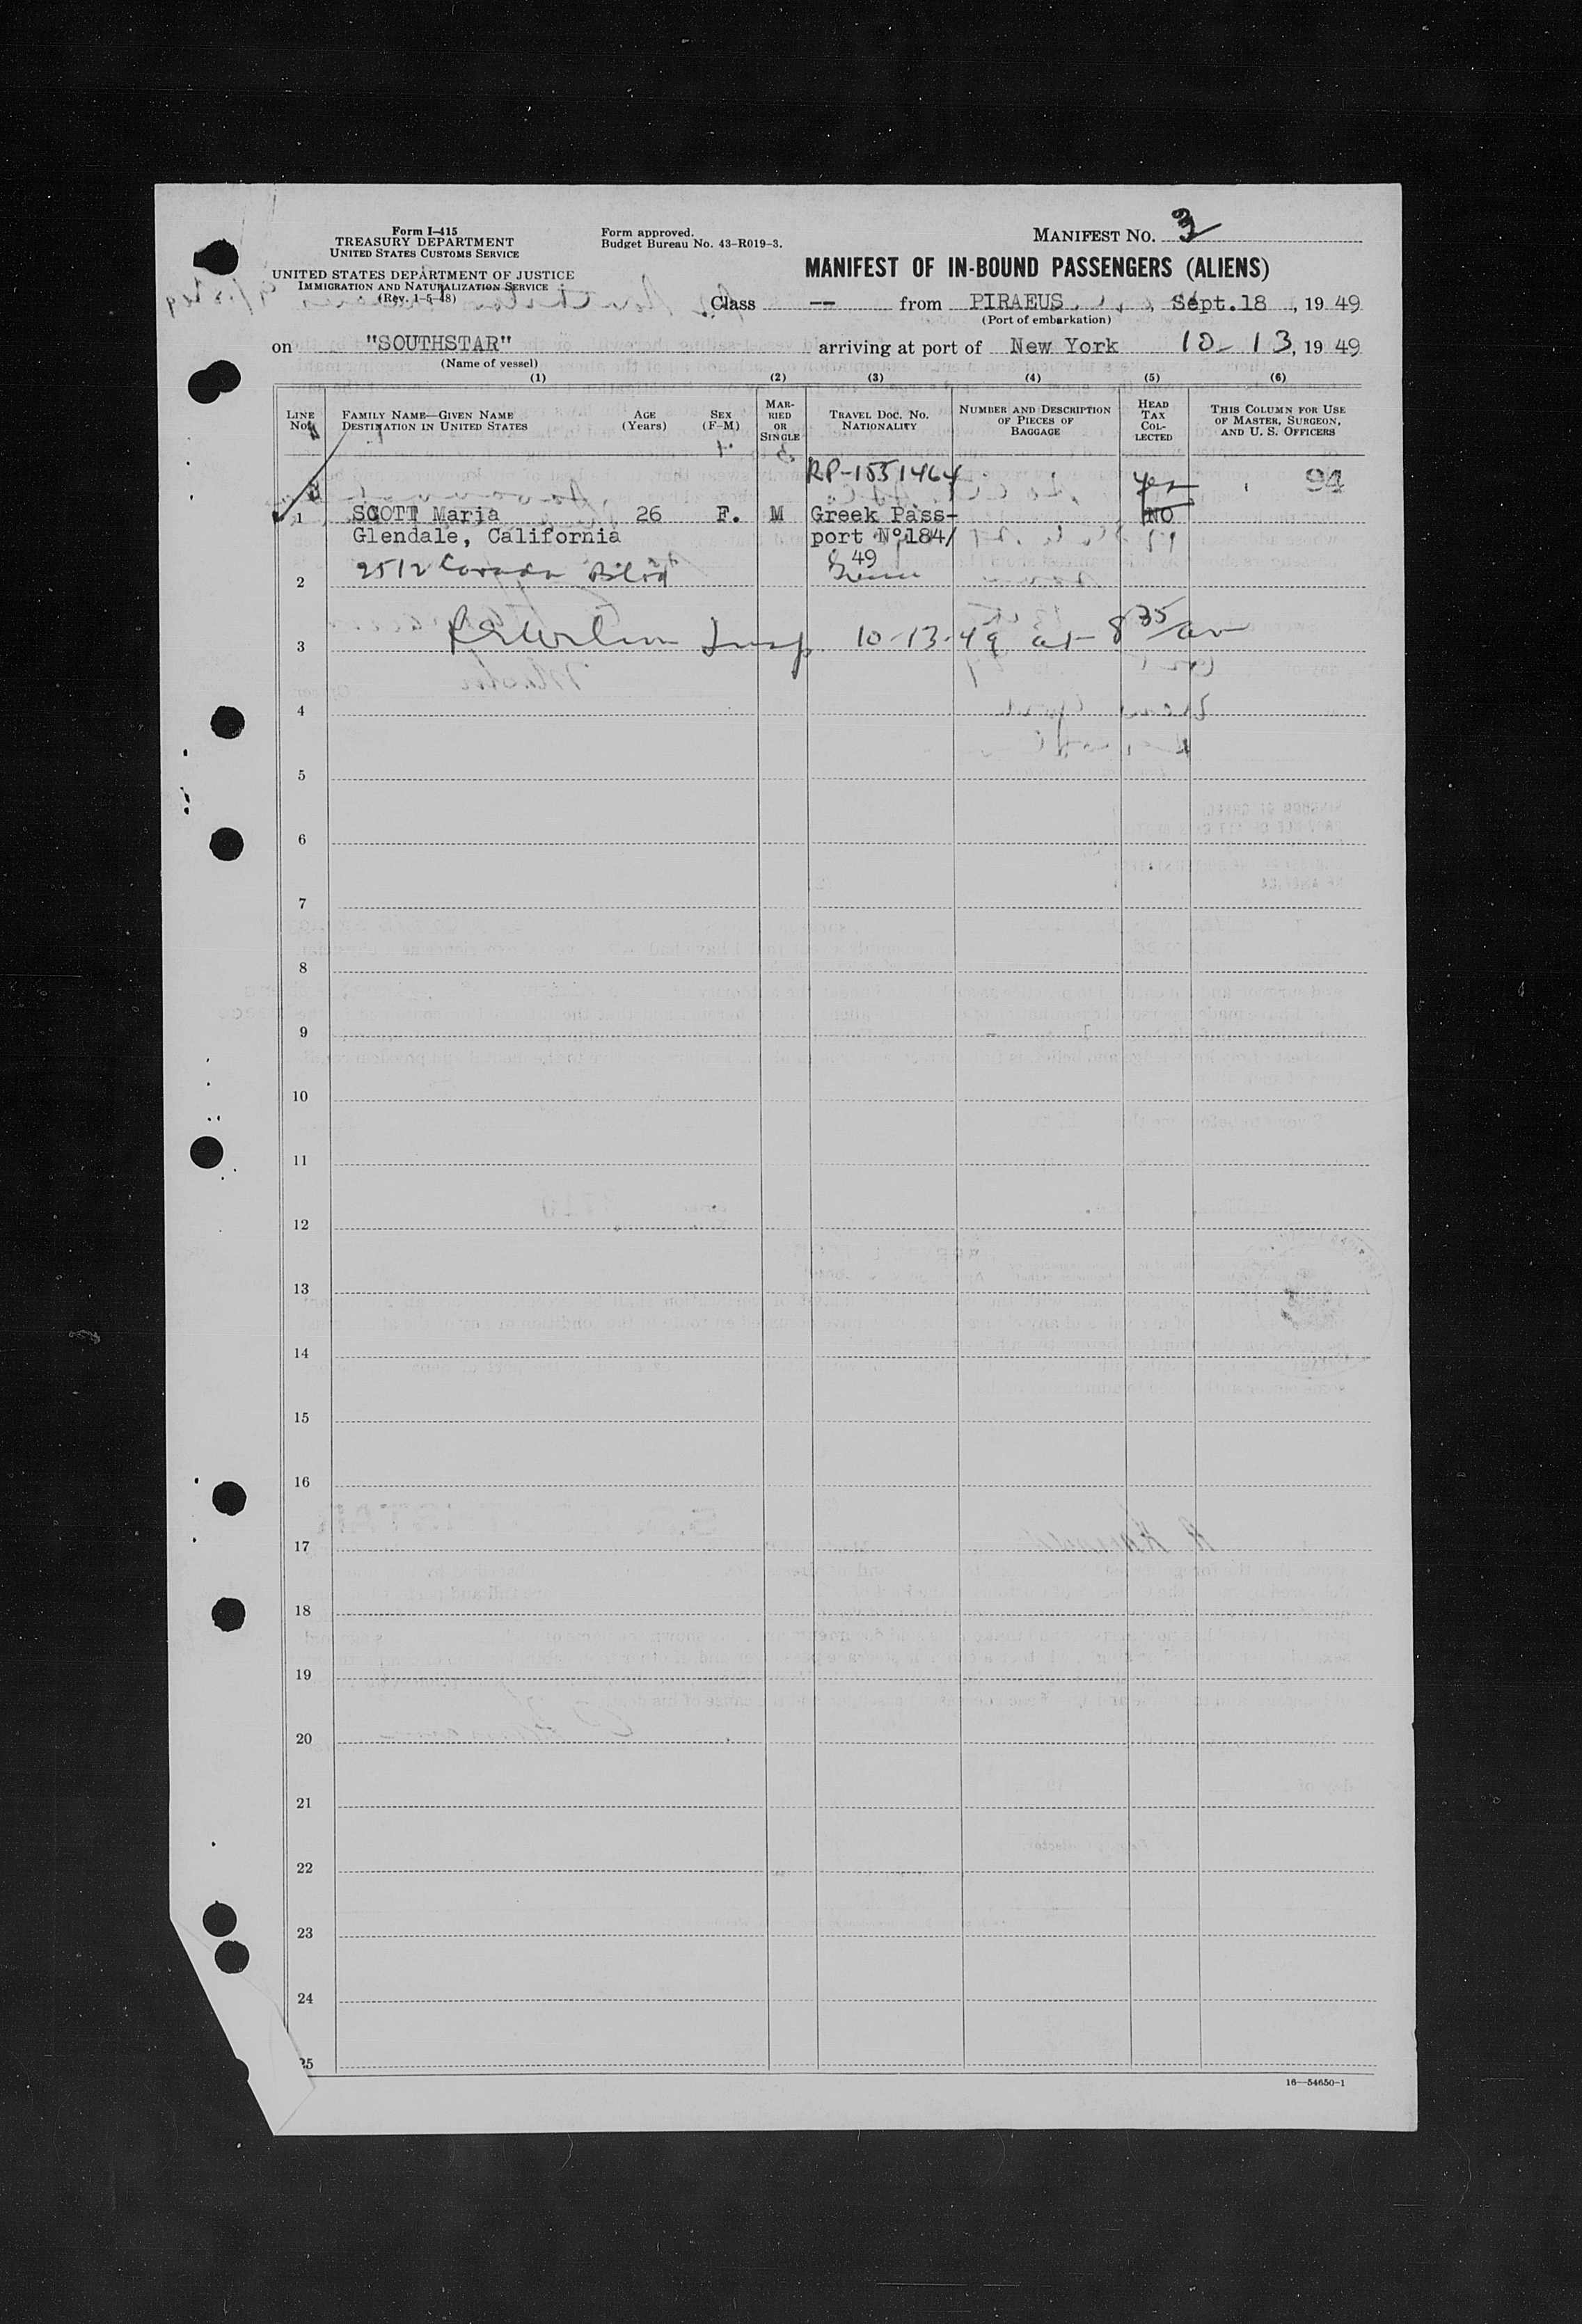 Form I-415
TREASURY DEPARTMENT
UNITED STATES CUSTOMS SERVICE
UNITED STATES DEPARTMENT OF JUSTICE
IMMIGRATION AND NATURALIZATION SERVICE
(Rev. 1-5-48)
Form approved.
Budget Bureau No. 43-R019-3.
MANIFEST NO. 3
MANIFEST OF IN-BOUND PASSENGERS (ALIENS)
Class -- from PIRAEUS, Sept.18, 1949
(Port of embarkation)
on "SOUTHSTAR" arriving at port of New York 10-13, 1949
(Name of vessel)
(1) (2) (3) (4) (5) (6)
LINE No. FAMILY NAME—GIVEN NAME DESTINATION IN UNITED STATES AGE (Years) SEX (F-M) MARRIED OR SINGLE TRAVEL DOC. NO. NATIONALITY NUMBER AND DESCRIPTION OF PIECES OF BAGGAGE HEAD TAX COLLECTED THIS COLUMN FOR USE OF MASTER, SURGEON, AND U. S. OFFICERS
RP-1551464 yes 94
1 SCOTT Maria 26 F. M Greek Pass- NO
Glendale, California port Nº184/
49
2 2512 Blvd
3 Insp 10-13-49 at 8 35/am
4
5
6
7
8
9
10
11
12
13
14
15
16
17
18
19
20
21
22
23
24
25
16—54650-1